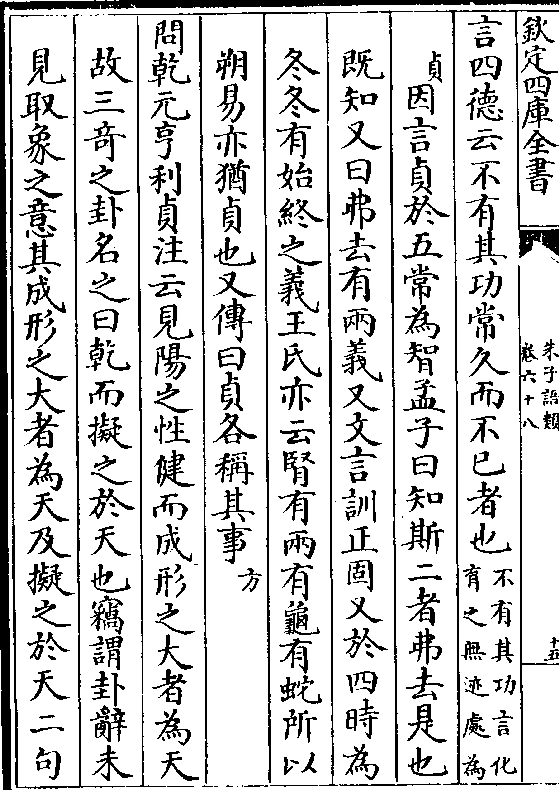 欽定四庫全書
朱子語類
卷六十八
十五
言四德云不有其功常久而不已者也不有其功言化
育之無迹處為
貞因言貞於五常為智孟子曰知斯二者弗去是也
既知又曰弗去有兩義又文言訓正固又於四時為
冬冬有始終之義王氏亦云腎有兩有龜有蛇所以
朔易亦猶貞也又傳曰貞各稱其事方
問乾元亨利貞注云見陽之性健而成形之大者為天
故三奇之卦名之曰乾而擬之於天也竊謂卦辭未
見取象之意其成形之大者為天及擬之於天二句